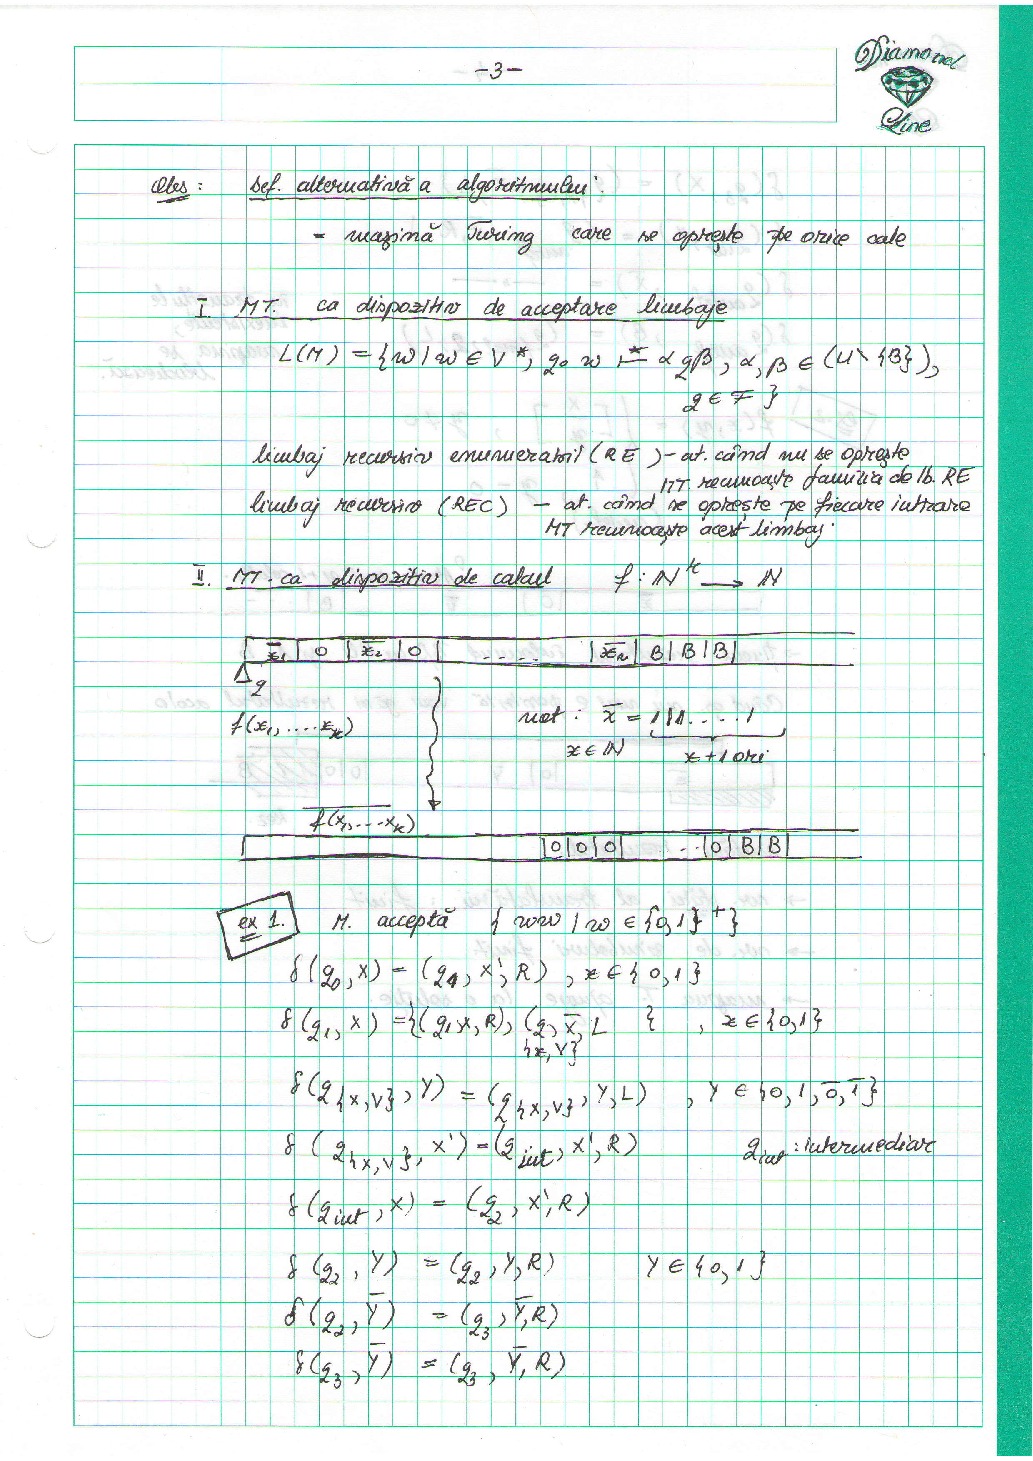 -3-
Diamond
Line
Obs: Def. alternativă a algoritmului:
- mașină Turing care se oprește pe orice cale
I. MT. ca dispozitiv de acceptare limbaje
L(M) = {w | w ∈ V*, q₀ w ⊢* α q β, α, β ∈ (U \ {B}),
q ∈ F}
limbaj recursiv enumerabil (RE) - at. când nu se oprește
MT recunoaște familia de lb. RE
limbaj recursiv (REC) - at. când se oprește pe fiecare intrare
MT recunoaște acest limbaj.
II. MT. ca dispozitiv de calcul f : ℕᵏ → ℕ
x̄₁ | 0 | x̄₂ | 0 | ..... | x̄ₙ | B | B | B |
q
f(x₁, .... xₖ)
not : x̄ = 111.....1
x ∈ ℕ x+1 ori
f(x₁, ... xₖ)
|0|0|0| ... |0|B|B|
ex 1. M. acceptă {ww | w ∈ {0,1}⁺}
δ(q₀, X) = (q₁, X', R), x ∈ {0,1}
δ(q₁, X) = {(q₁, X, R), (q, x̄, L } , x ∈ {0,1}
{x,V}
δ(q{x,V}, Y) = (q{x,V}, Y, L) , Y ∈ {0, 1, 0̄, 1̄}
δ(q{x,V}, X') = (q int, X', R) q int : intermediar
δ(q int, X) = (q₂, X', R)
δ(q₂, Y) = (q₂, Y, R) Y ∈ {0,1}
δ(q₂, Ȳ) = (q₃, Ȳ, R)
δ(q₃, Ȳ) = (q₃, Ȳ, R)